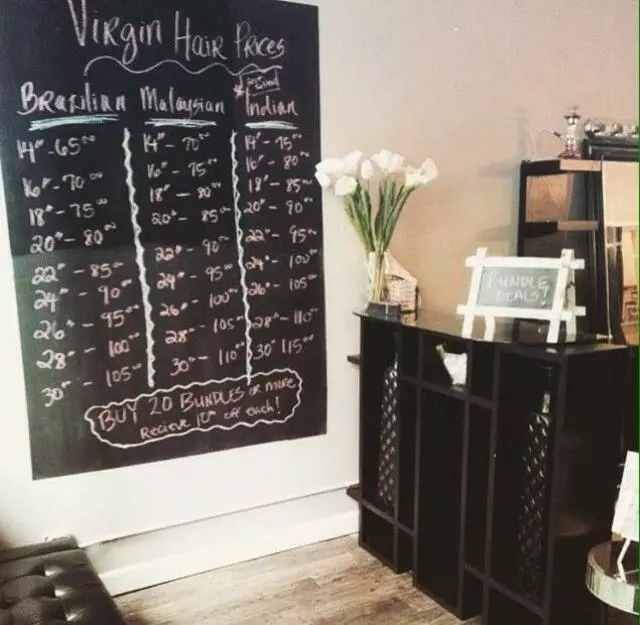 Virgin Hair Prices
Brazilian
14" - 65.00
16" - 70.00
18" - 75.00
20" - 80.00
22" - 85.00
24" - 90.00
26" - 95.00
28" - 100.00
30" - 105.00
Malaysian
14" - 70.00
16" - 75.00
18" - 80.00
20" - 85.00
22" - 90.00
24" - 95.00
26" - 100.00
28" - 105.00
30" - 110.00
Indian
14" - 75.00
16" - 80.00
18" - 85.00
20" - 90.00
22" - 95.00
24" - 100.00
26" - 105.00
28" - 110.00
30" 115.00
BUY 20 BUNDLES or more
Recieve 10.00 off each!
BUNDLE
DEALS!